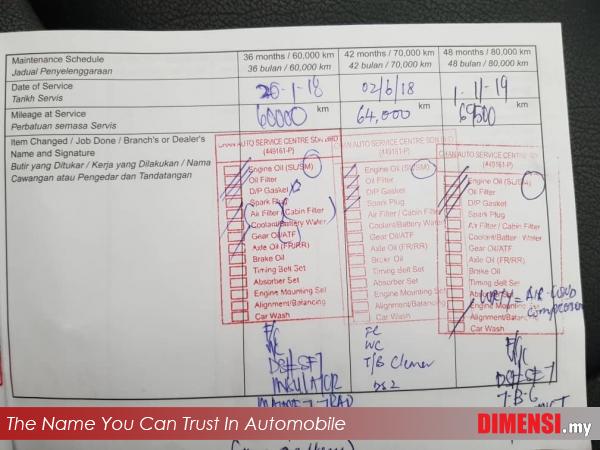 Maintenance Schedule
Jadual Penyelenggaraan
36 months / 60,000 km
36 bulan / 60,000 km
42 months / 70,000 km
42 bulan / 70,000 km
48 months / 80,000 km
48 bulan / 80,000 km
Date of Service
Tarikh Servis
20-1-18
02/6/18
1-11-19
Mileage at Service
Perbatuan semasa Servis
60000 km
64,000 km
69500 km
Item Changed / Job Done / Branch's or Dealer's
Name and Signature
Butir yang Ditukar / Kerja yang Dilakukan / Nama
Cawangan atau Pengedar dan Tandatangan
CHAN AUTO SERVICE CENTRE SDN BHD
(449161-P)
Engine Oil (SL/SM)
Oil Filter
D/P Gasket
Spark Plug
Air Filter / Cabin Filter
Coolant/Battery Water
Gear Oil/ATF
Axle Oil (FR/RR)
Brake Oil
Timing Belt Set
Absorber Set
Engine Mounting Set
Alignment/Balancing
Car Wash
F/C
WC
INSULATOR
CHAN AUTO SERVICE CENTRE SDN BHD
(449161-P)
Engine Oil (SL/SM)
Oil Filter
D/P Gasket
Spark Plug
Air Filter / Cabin Filter
Coolant/Battery Water
Gear Oil/ATF
Axle Oil (FR/RR)
Brake Oil
Timing Belt Set
Absorber Set
Engine Mounting Set
Alignment/Balancing
Car Wash
FC
WC
T/B Cleaner
DS2
CHAN AUTO SERVICE CENTRE SDN BHD
(449161-P)
Engine Oil (SL/SM)
Oil Filter
D/P Gasket
Spark Plug
Air Filter / Cabin Filter
Coolant/Battery Water
Gear Oil/ATF
Axle Oil (FR/RR)
Brake Oil
Timing Belt Set
Engine Mounting
Alignment/Balancing
Car Wash
compressor
The Name You Can Trust In Automobile
DIMENSI.my